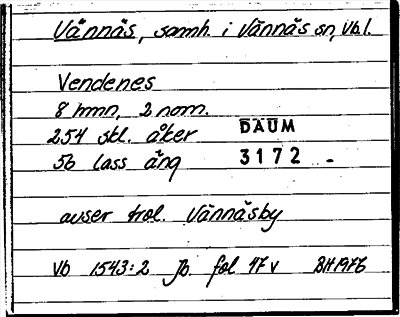 Vännäs, samh. i Vännäs sn, Vb.l.
Vendenes
8 hmn, 2 nom.
254 skl. åker DAUM
56 lass äng 3172 -
avser trol. Vännäsby
Vb 1543:2 Jb fol 47 v BH 1976